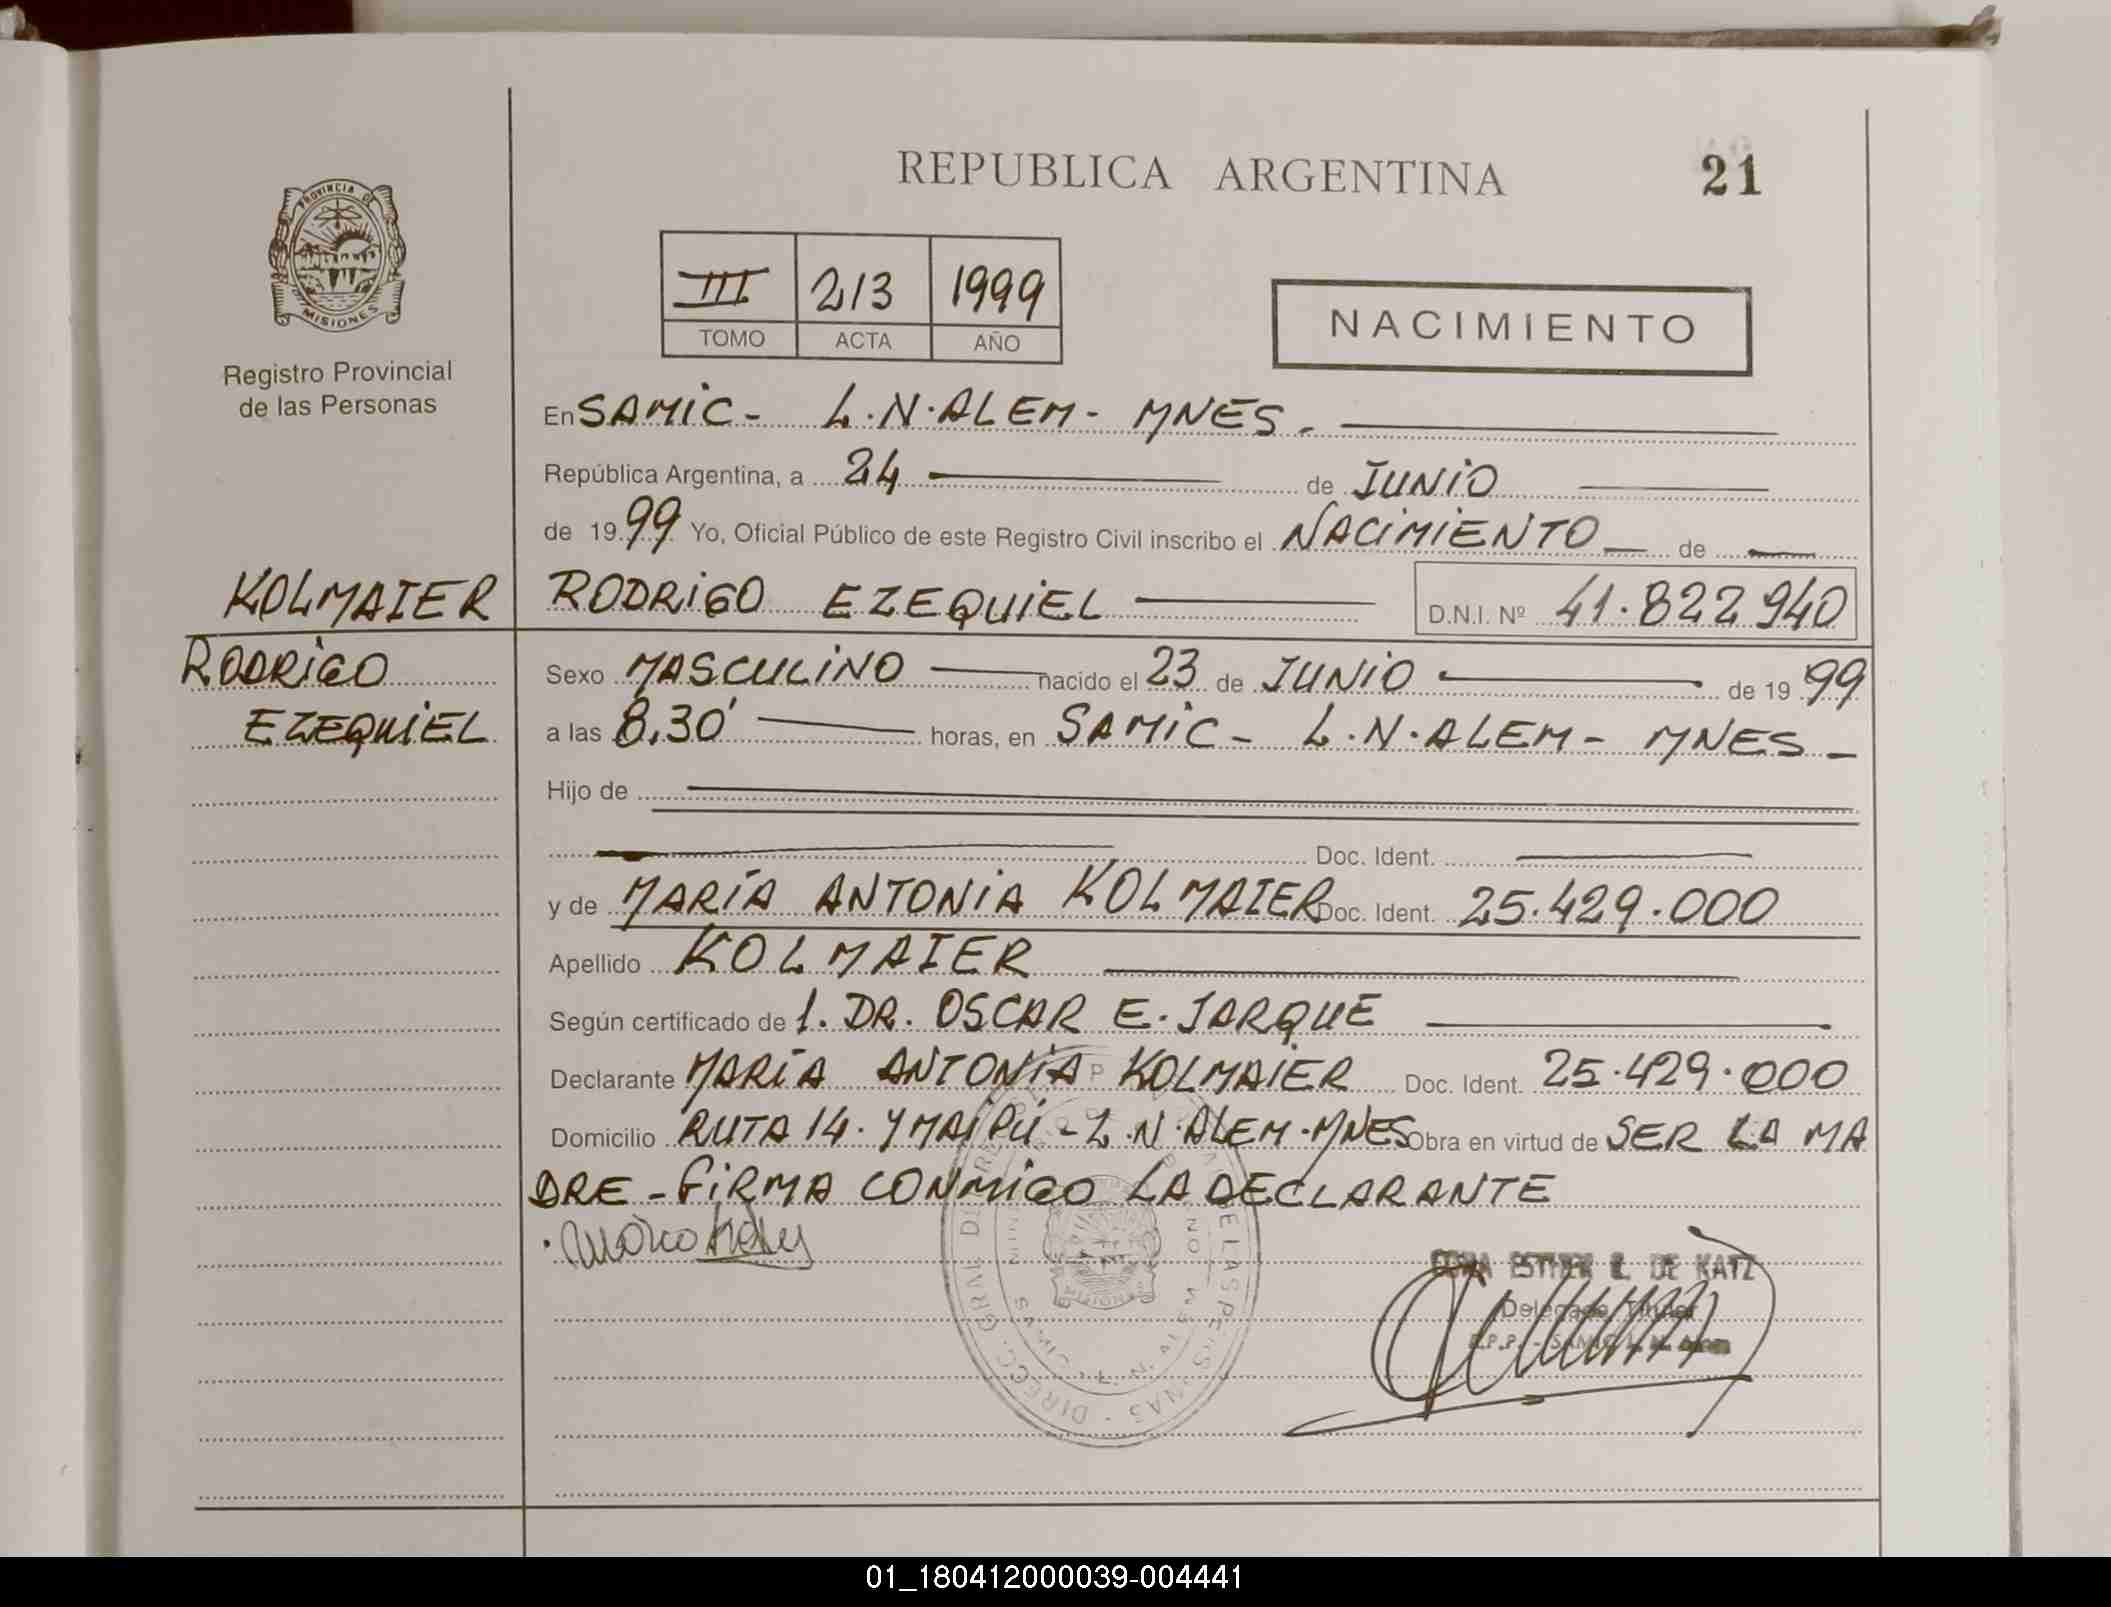 REPUBLICA ARGENTINA
21
PROVINCIA DE
MISIONES
Registro Provincial
de las Personas
III 213 1999
TOMO ACTA AÑO
NACIMIENTO
En SAMIC - L.N. ALEM - MNES.
República Argentina, a 24 de JUNIO
de 1999 Yo, Oficial Público de este Registro Civil inscribo el NACIMIENTO de
KOLMAIER
RODRIGO
EZEQUIEL
RODRIGO EZEQUIEL D.N.I. Nº 41.822940
Sexo MASCULINO nacido el 23 de JUNIO de 1999
a las 8,30' horas, en SAMIC - L.N. ALEM - MNES -
Hijo de
Doc. Ident.
y de MARÍA ANTONIA KOLMAIER Doc. Ident. 25.429.000
Apellido KOLMAIER
Según certificado de 1. DR. OSCAR E. JARQUE
Declarante MARÍA ANTONIA KOLMAIER Doc. Ident. 25.429.000
Domicilio RUTA 14. Y MAIPÚ - L.N. ALEM - MNES Obra en virtud de SER LA MA
DRE - FIRMA CONMIGO LA DECLARANTE
ESTHER DE KATZ
Delegada Titular
R.P.P. - SAMIC L.N. Alem
01_180412000039-004441